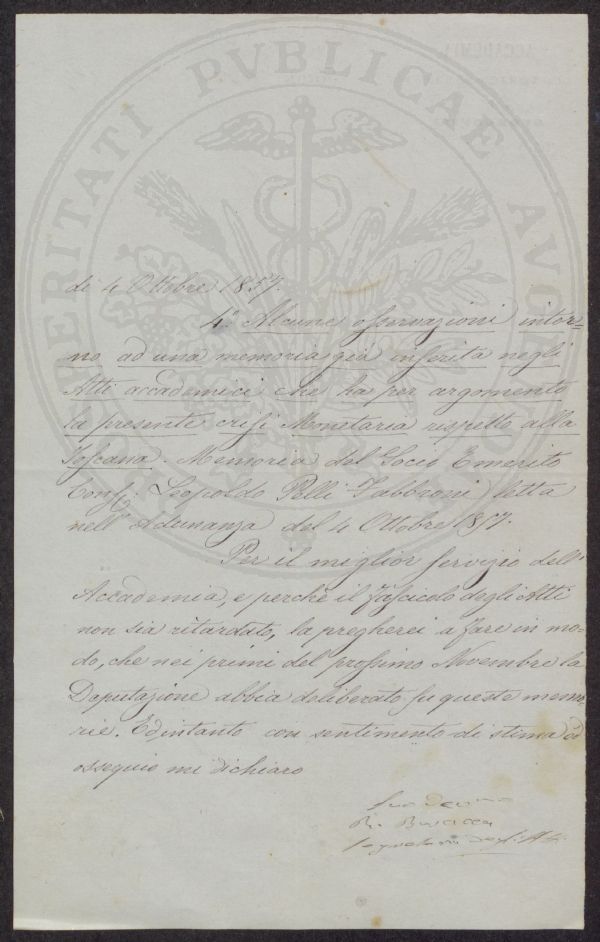 PROSPERITATI PVBLICAE AVGENDAE
ACCADEMIA
di 4 Ottobre 1857.
4.° Alcune osservazioni intor-
no ad una memoria già inserita negli
Atti accademici che ha per argomento
la presente crisi Monetaria rispetto alla
Toscana. Memoria del Socio Emerito
Consig. Leopoldo Pelli Fabbroni, letta
nell'Adunanza del 4 Ottobre 1857.
Per il miglior servizio dell'
Accademia, e perchè il fascicolo degli Atti
non sia ritardato, la pregherei a fare in mo-
do, che nei primi del prossimo Novembre la
Deputazione abbia deliberato su queste memo-
rie. Ed intanto con sentimento di stima ed
ossequio mi dichiaro
Suo Devmo
R. Busacca
Segretario degli Atti